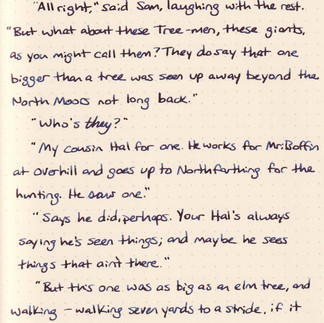 "All right," said Sam, laughing with the rest.
"But what about these Tree-men, these giants,
as you might call them? They do say that one
bigger than a tree was seen up away beyond the
North Moors not long back."
"Who's they?"
"My cousin Hal for one. He works for Mr. Boffin
at Overhill and goes up to Northfarthing for the
hunting. He saw one."
"Says he did, perhaps. Your Hal's always
saying he's seen things; and maybe he sees
things that ain't there."
"But this one was as big as an elm tree, and
walking – walking seven yards to a stride, if it